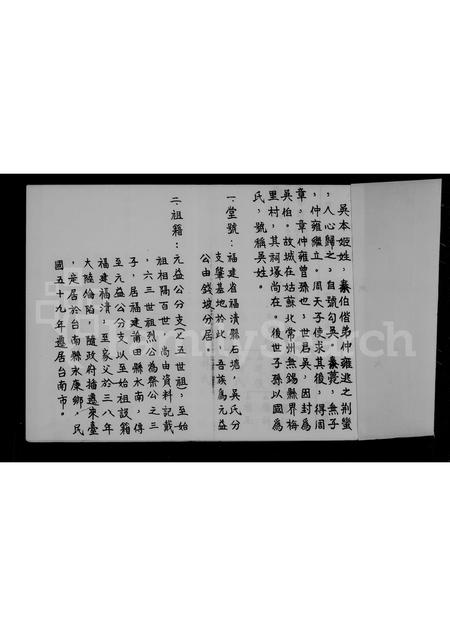 吳本姬姓，泰伯偕弟仲雍逃之荊蠻
，人心歸之，自號句吳。泰薨，無子
，仲雍繼立。周天子使求其後，得周
章，章仲雍曾孫也，世君吳，因封為
吳伯。故城在姑蘇北常州無錫縣界梅
里村，其祠塚尚在。後世子孫以國為
氏，號稱吳姓。
一堂號：福建省福清縣石塘，吳氏分
支肇基地於此，吾族為元益
公由錢坡分居。
二祖籍：元益公分支（五世祖，至始
祖相隔百世，尚由資料記載
，六三世祖烈公為祭公之三
子，居福建莆田縣水南，傳
至元益公分支以至始祖設籍
福建福清，至家父於三八年
大陸倫陷，隨政府播遷來臺
，定居於台南縣永康鄉，民
國五十九年遷居台南市。
FamilySearch